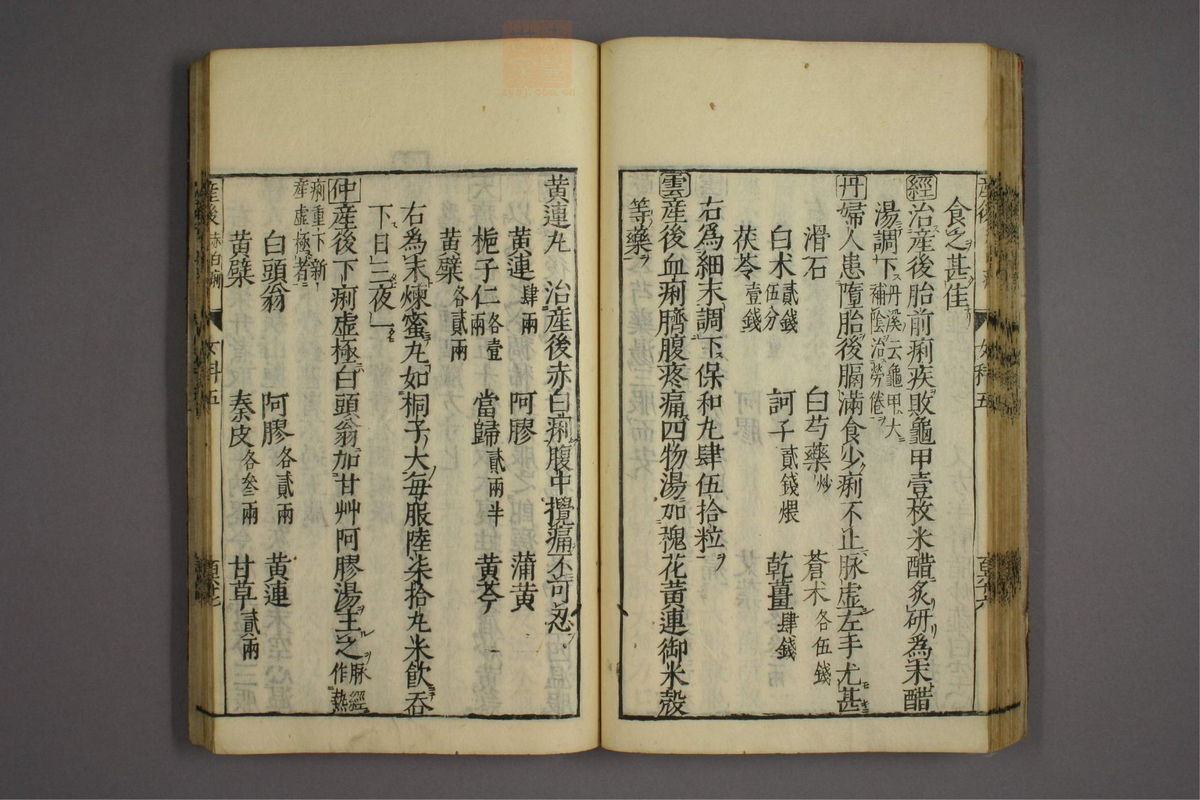 食之甚佳
經治産後胎前痢疾敗龜甲壹枚米醋炙研爲末醋
湯調下丹溪云龜甲大補陰治勞倦
丹婦人患墮胎後膈滿食少痢不止脉虚左手尤甚
滑石 白芍藥炒 蒼朮各伍錢
白朮貳錢伍分 訶子貳錢煨 乾薑肆錢
茯苓壹錢
右爲細末調下保和丸肆伍拾粒
雲産後血痢臍腹疼痛四物湯加槐花黄連御米殼
等藥
女科五
黄連丸 治産後赤白痢腹中攪痛不可忍
黄連肆兩 阿膠 蒲黄
梔子仁各壹兩 當歸貳兩半 黄芩
黄蘗各貳兩
右爲末煉蜜丸如桐子大毎服陸柒拾丸米飲呑
下日三夜一
仲産後下痢虚極白頭翁加甘艸阿膠湯主之脉經作熱
痢重下新産虚極者
白頭翁 阿膠各貳兩 黄連
黄蘗 秦皮各叁兩 甘草貳兩
産後 赤白痢 女科五